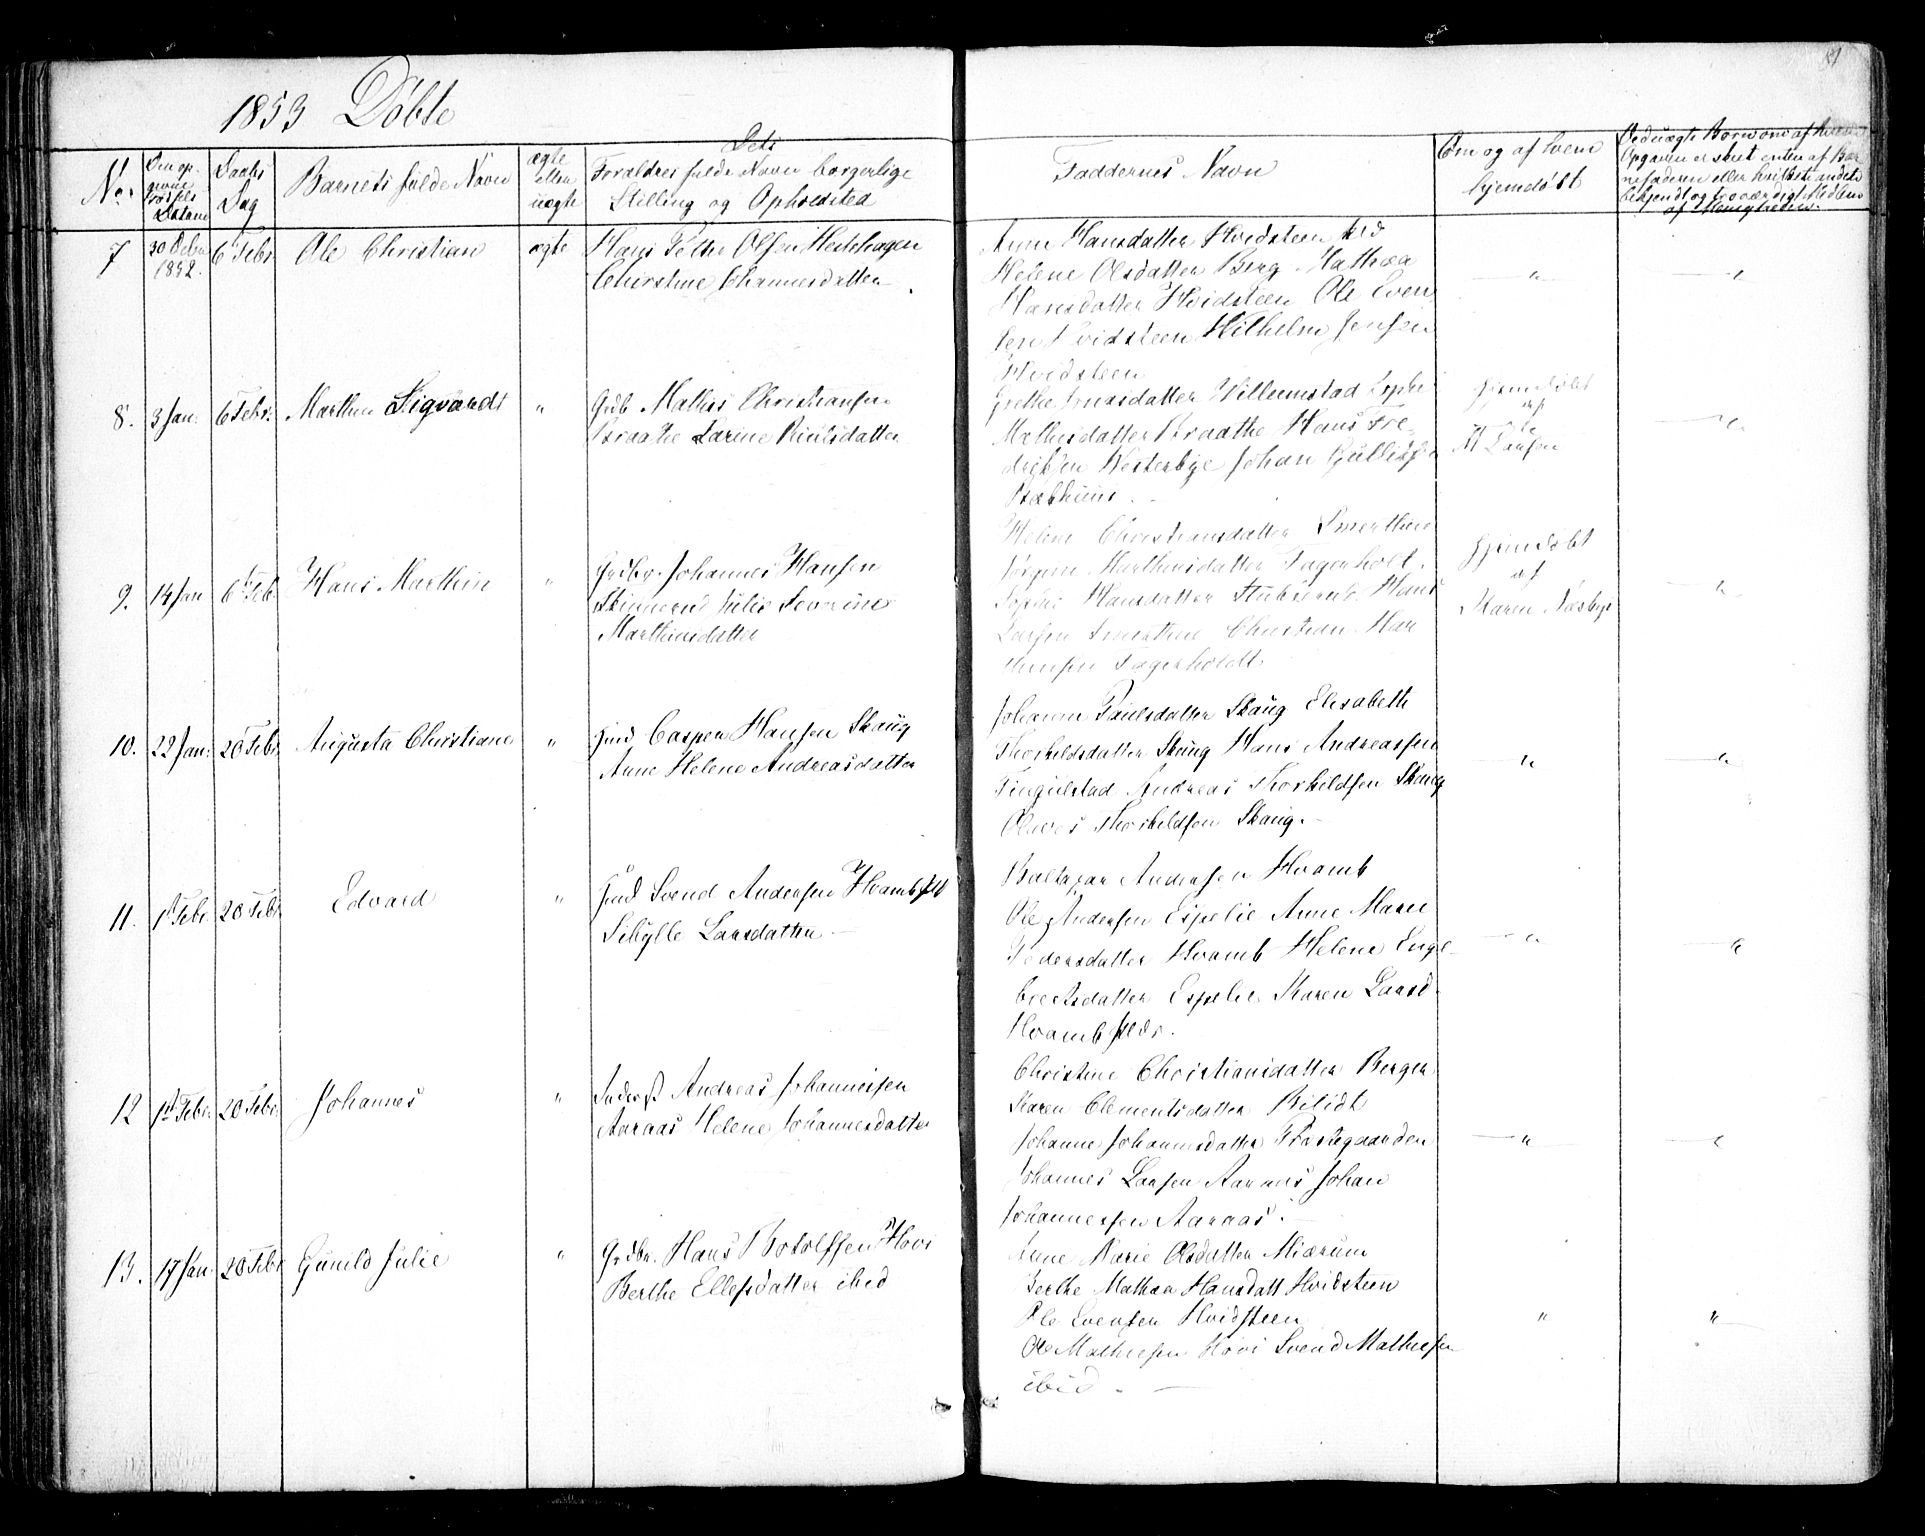 81
1853 Døbte
No.
Den op-
givne
Fødsels
Datum
Daabs
Dag
Barnets fulde Navn
ægte
eller
uægte
Dets
Forældres fulde Navn borgerlige
Stilling og Opholdsted
Faddernes Navn
Om og af hvem
hjemdøbt
Ved uægte Børn om af
Opgaven er skeet enten af Bar
nefaderen eller hvilketsomhelst andet
bekjendt og troværdigt Medlem
af Menigheden.
7
30 Debr
1852.
6 Febr
Ole Christian
ægte
Hans Peter Olsen Hestehagen
Christine Johannesdatter
Anne Hansdatter Hvidsteen
Helene Olsdatter Berg Mathea
Hansdatter Hvidsteen Ole Even
sen Hvidsteen Wilhelm Jensen
Hvidsteen
"
"
8.
3 Jan:
6 Febr.
Marthin Sigvardt
"
Grdb Mathis Christiansen
Braathe Karine Poulsdatter
Grethe Jonasdatter Willumstad Sophie
Mathisdatter Braathe Hans Fre-
driksen Westerbye Johan Gulliksen
Bækhuus.
hjemdøbt
af
M Larsen
"
9.
14 Jan
6 Feb
Hans Marthin
"
Grdbr. Johannes Hansen
Skinnerud Julie Severine
Marthinsdatter
Helene Christiansdatter Smerthue
Jørgine Marthinsdatter Fagerholt.
Sophie Hansdatter Hans
Larsen Smerthue Christian Mar
thinsen Fagerholdt.
hjemdøbt
af
Karen Næsbye
"
10.
22 Jan:
20 Febr
Augusta Christiane
"
Casper Hansen Skaug
Anne Helene Andreasdatter
Johanne Paulsdatter Skaug Elisabeth
Thorkildsdatter Skaug Hans Andreassen
Tingulstad Andreas Thorkildsen Skaug
Olaves Thorkildsen Skaug.
"
"
11.
1st Febr
20 Febr
Edvard
"
Svend Andersen Hvambsfld
Sibylle Larsdatter
Baltazar Andersen Hvamb
Ole Andersen Espelie Anne Marie
Pedersdatter Hvamb Helene Engel-
brecktsdatter Espelie Karen Larsd.
Hvambfldr.
"
"
12
1st Febr
20 Febr
Johannes
"
Inderst Andreas Johannesen
Aaraas Helene Johannesdatter
Christine Christiansdatter Berger
Karen Clementsdatter Bilidt
Johanne Johannesdatter Præstegaarden
Johannes Larsen Aaraas Johan
Johannessen Aaraas.
"
"
13.
17 Jan
20 Febr
Gunild Julie
"
Grdbr. Hans Botolfsen Hovi
Berthe Ellefsdatter ibid
Anne Marie Olsdatter Miærum
Berthe Mathea Hansdatt Hvidsteen
Ole Svensen Hvidsteen
Ole Mathiesen Hovi Svend Mathiesen
ibid.
"
"